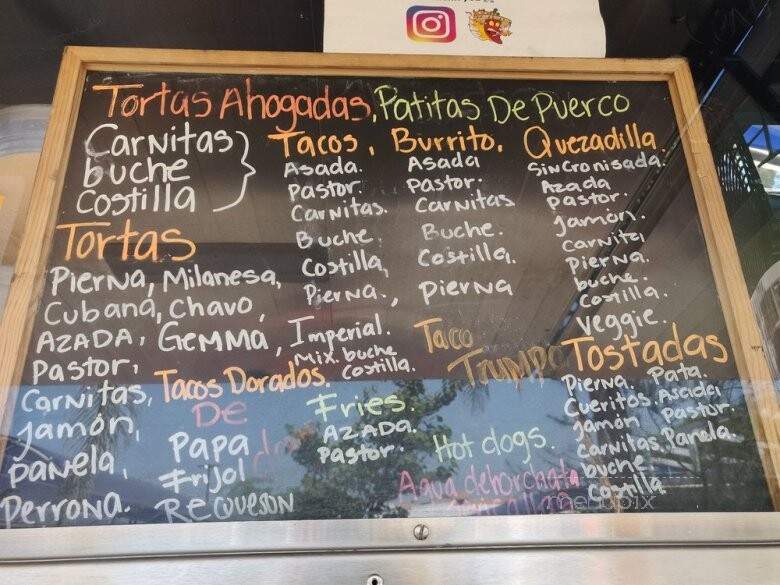 Tortas Ahogadas, Patitas De Puerco
Carnitas
buche
Costilla
Tacos, Burrito, Quezadilla.
Asada.
Pastor.
Carnitas.
Buche.
Costilla,
Pierna.,
Asada
Pastor.
Carnitas
Buche.
Costilla.
Pierna
Sincronisada.
Azada
Pastor.
Jamón.
Carnita
Pierna.
buche.
Costilla.
Veggie.
Tortas
Pierna, Milanesa,
Cubana, Chavo,
AZADA, Gemma, Imperial.
Pastor,
Carnitas,
Jamón,
Panela,
Perrona.
Mix. buche
Costilla.
Taco
Trumpo
Tacos Dorados.
De
Papa
Frijol
Requeson
Fries.
AZADA.
Pastor.
Hot dogs.
Agua dehorchata
Tostadas
Pierna. Pata.
Cueritos Asada
Jamón Pastor.
Carnitas Panela.
buche
Costilla
menupix